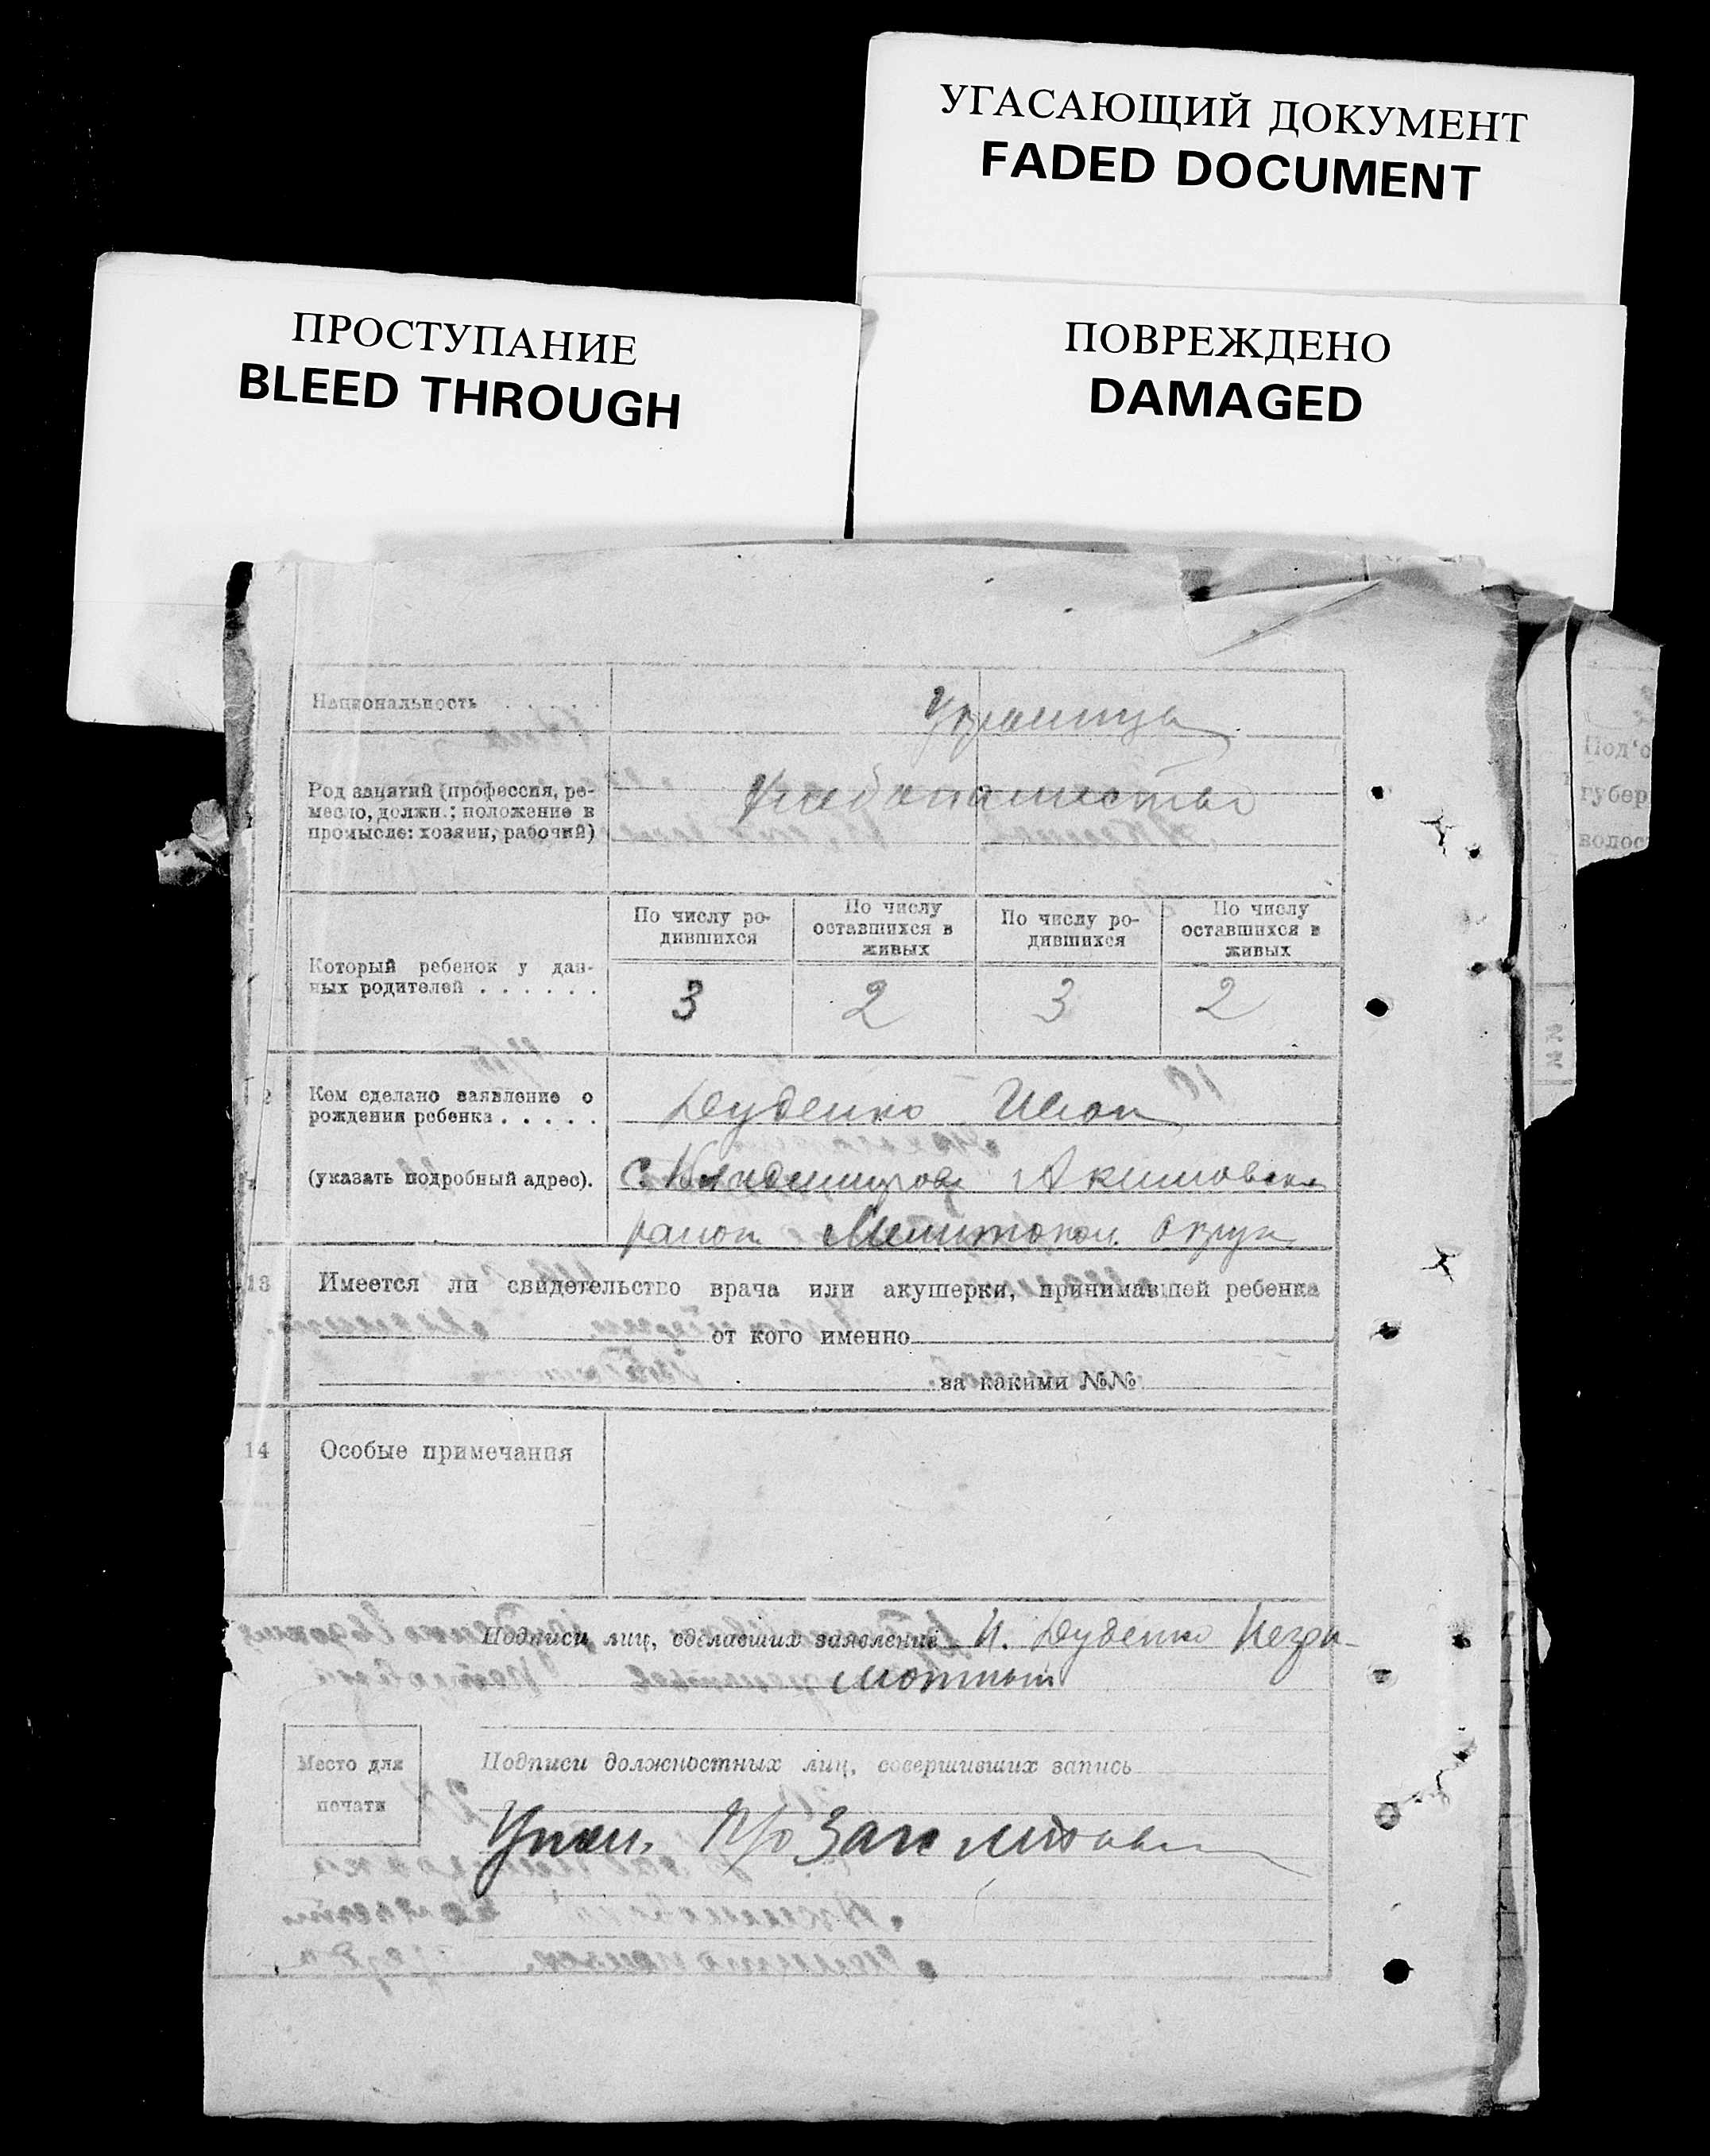 УГАСАЮЩИЙ ДОКУМЕНТ
FADED DOCUMENT
ПРОСТУПАНИЕ
BLEED THROUGH
ПОВРЕЖДЕНО
DAMAGED
Национальность . . . . .
Украинцы
Род занятий (профессия, ре-
месло, должн.; положение в
промысле: хозяин, рабочий)
Хлебопашество
По числу ро-
дившихся
По числу
оставшихся в
живых
По числу ро-
дившихся
По числу
оставшихся в
живых
Который ребенок у дан-
ных родителей . . . . . .
3 2 3 2
Кем сделано заявление о
рождении ребенка . . . . .
Дуденко Иван
(указать подробный адрес).
с. Акимовск
район Мелитопол. округа
13 Имеется ли свидетельство врача или акушерки, принимавшей ребенка
от кого именно
за какими №№
14 Особые примечания
Подписи лиц, сделавших заявление И. Дуденко Негра-
мотный
Место для
печати
Подписи должностных лиц, совершивших запись
Под'о
губер
волос
№№